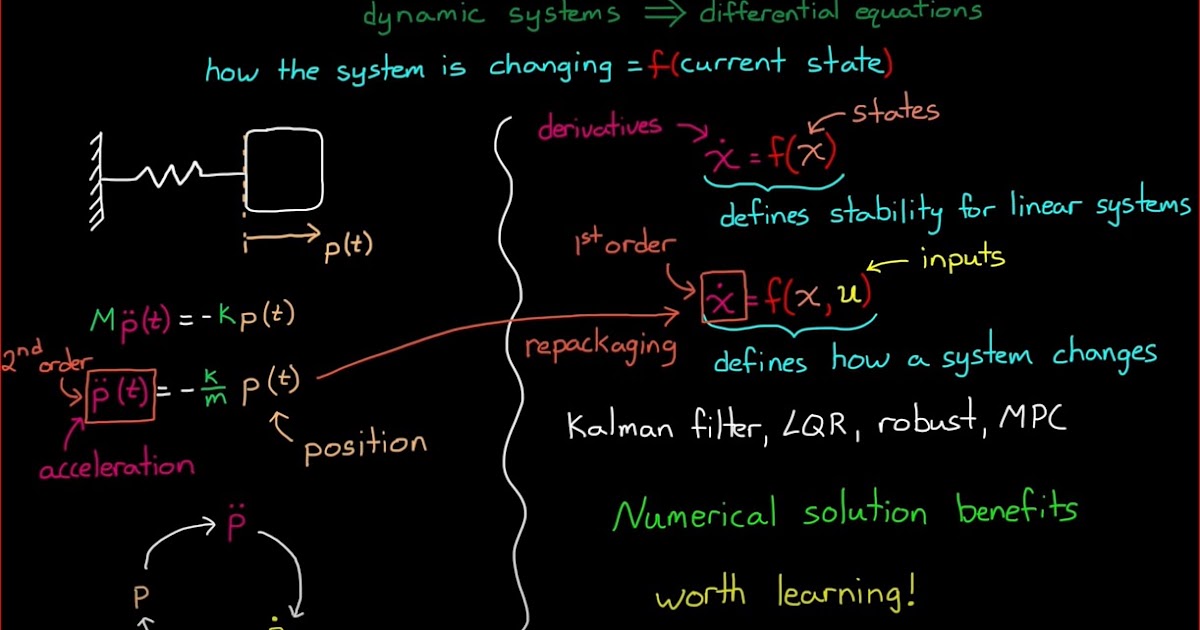 dynamic systems ⟹ differential equations
how the system is changing = f(current state)
p(t)
Mp̈(t) = -Kp(t)
2nd order
p̈(t) = - k/m p(t)
acceleration
position
p̈
p
derivatives
states
ẋ = f(x)
defines stability for linear systems
1st order
inputs
ẋ = f(x, u)
repackaging
defines how a system changes
Kalman filter, LQR, robust, MPC
Numerical solution benefits
worth learning!